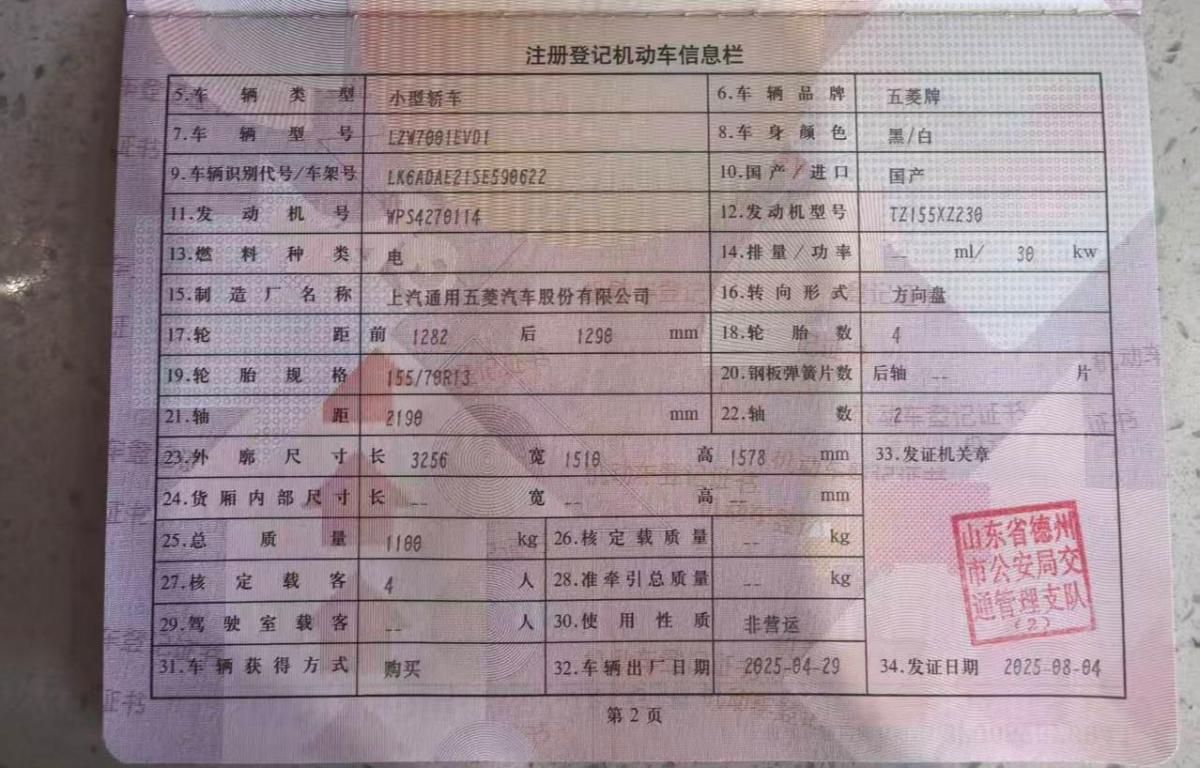 注册登记机动车信息栏
5.车辆类型 小型轿车 6.车辆品牌 五菱牌
7.车辆型号 LZW7001EVD1 8.车身颜色 黑/白
9.车辆识别代号/车架号 LK6ADAE21SE590622 10.国产/进口 国产
11.发动机号 WPS4270114 12.发动机型号 TZ155XZ230
13.燃料种类 电 14.排量/功率 -- ml/ 30 kw
15.制造厂名称 上汽通用五菱汽车股份有限公司 16.转向形式 方向盘
17.轮距 前 1282 后 1290 mm 18.轮胎数 4
19.轮胎规格 155/70R13 20.钢板弹簧片数 后轴 -- 片
21.轴距 2190 mm 22.轴数 2
23.外廓尺寸 长 3256 宽 1510 高 1578 mm 33.发证机关章
24.货厢内部尺寸 长 -- 宽 -- 高 -- mm
25.总质量 1100 kg 26.核定载质量 -- kg
27.核定载客 4 人 28.准牵引总质量 -- kg
29.驾驶室载客 -- 人 30.使用性质 非营运
山东省德州
市公安局交
通管理支队
(2)
31.车辆获得方式 购买 32.车辆出厂日期 2025-04-29 34.发证日期 2025-08-04
第 2 页